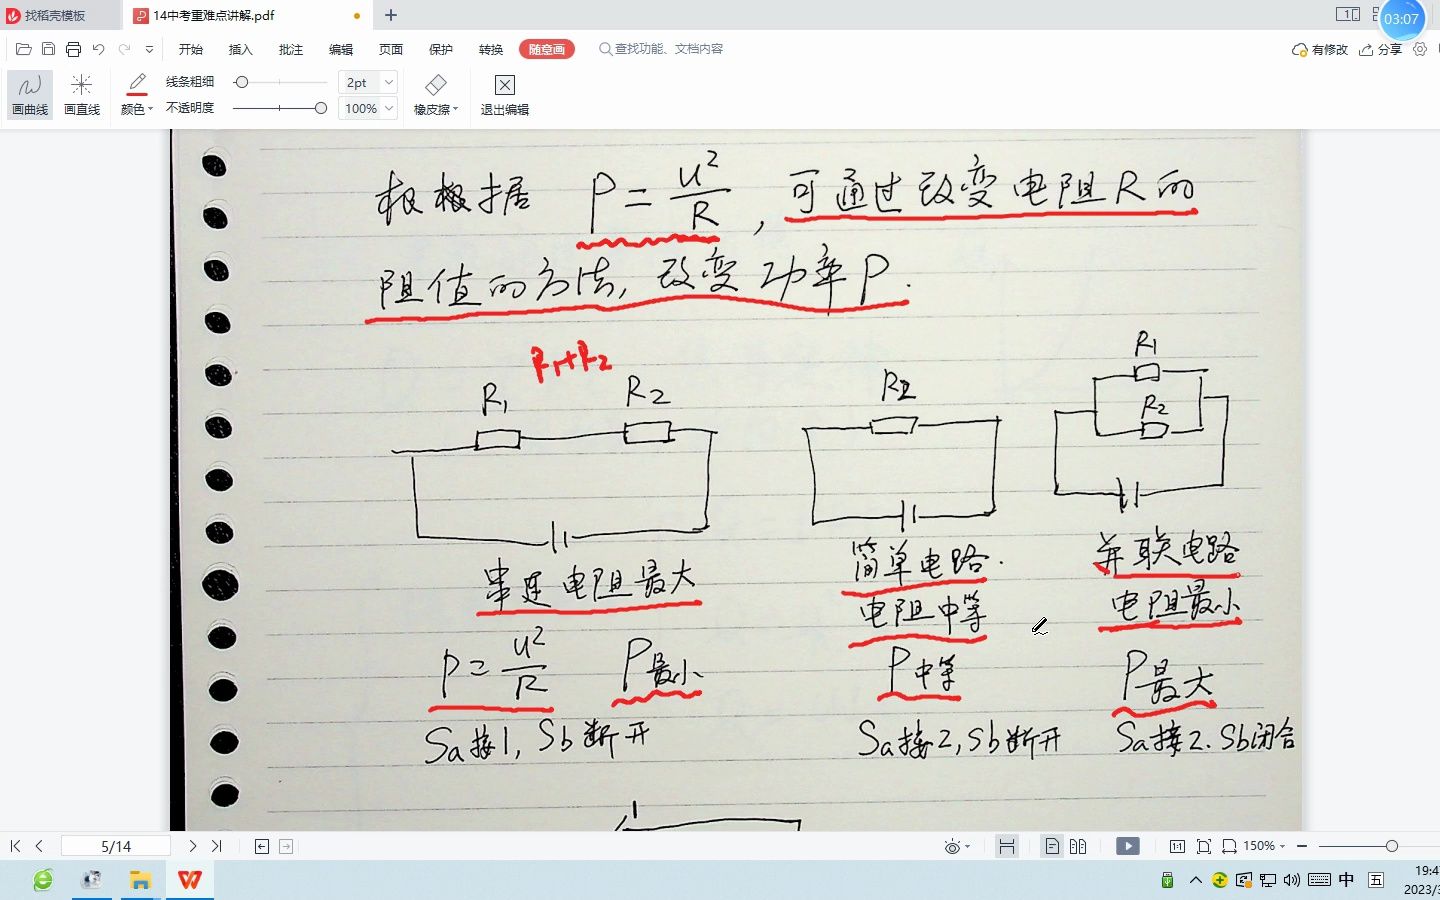 找稻壳模板
14中考重难点讲解.pdf
03:07
开始 插入 批注 编辑 页面 保护 转换 随意画 查找功能、文档内容
有修改 分享
画曲线 画直线 颜色 线条粗细 2pt
不透明度 100% 橡皮擦 退出编辑
根据 P = U²/R , 可通过改变电阻R的
阻值的方法, 改变功率P.
R₁+R₂
R₁ R₂
R₂
R₁
R₂
串连电阻最大
简单电路.
电阻中等
并联电路
电阻最小
P = U²/R P最小
P中等
P最大
Sa接1, Sb断开
Sa接2, Sb断开
Sa接2. Sb闭合
1
5/14
1:1
150%
中 五
19:4
2023/3